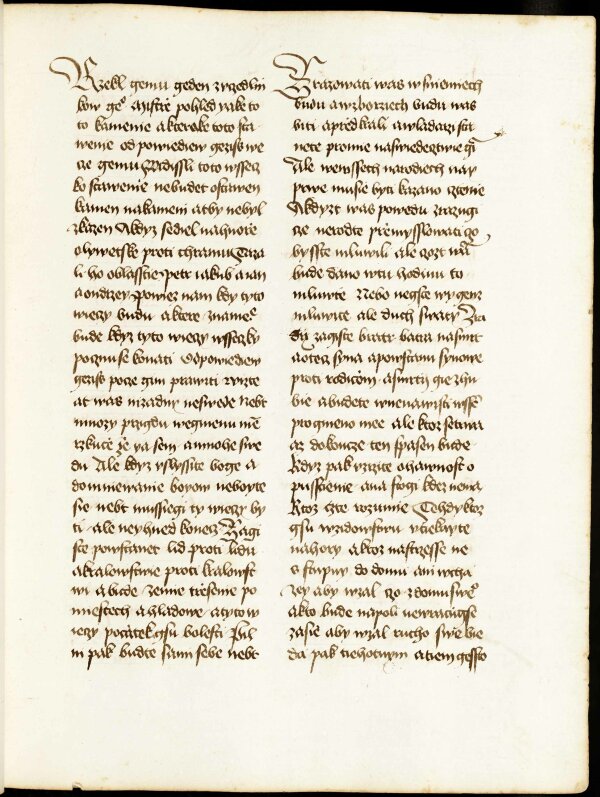 Rzekl gemu geden zvczedlni
kow ge° Mistrze pohled yake to
to kamenie akterake toto sta
wenie od powiediew gezis we
cze gemu Widissli toto wssecz
ko stawenie nebudet ostawen
kamen nakameni aby nebyl
zkazen Akdyz sediel nahorze
olywetske proti chramu Taza
li ho obzlasstie petr iakub aian
aondrzey powiez nam kdy tyto
wieczy budu aktere zname
bude kdyz tyto wieczy wsseczky
poczinu se konati Odpowiediew
gezis poczie gim prawiti wizte
at was nizadny neswede nebt
mnozy przigdu wegmenu mee
rzkuce ze ya sem amnohe swe
du Ale kdyz vslyssite boge a
domniewanie bogow neboyte
sie nebt mussiegi ty wieczy by
ti ale neyhned konecz Zagi
ste powstanet lid proti lidu
akralowstwie proti kralowst
wi abude zemie trzesenie po
miestech ahladowe atyto w
ieczy pocatek gsu bolesti Pil
ni pak budte sami sebe nebt
Zrazowati was wsniemiech
budu awzborziech budu was
biti aprzed krali awladarzi sta
nete promie naswiedecztwie gim
Ale wewssech narodiech nay
prwe musie byti kazano cztenie
Akdyzt was powedu zrazugi
cze nerodte przemysslowati czo
byste mluwili ale czozt wam
bude dano wtu hodinu to
mluwte Nebo negste wy genz
mluwite ale duch swaty Zra
di zagiste bratr bratra nasmrt
aotecz syna apowstanu synowe
proti rodiczom asmrti gie zhu
bie abudete wnenawisti wssem
progmeno mee ale ktoz setrwa
az dokoncze ten spasen bude
Kdyz pak vzrzite ohawnost o
pusstienie ana stogi kdez nema
Ktoz czte rozumie Tehdy ktoz
gsu wzidowstwu vtiekayte
nahory aktoz nastrzesse ne
s stupuy do domu ani wcha
zey aby wzal czo zdomu swe°
akto bude napoli newracugse
zasie aby wzal rucho swe bie
da pak tiehotnym atiem gessto